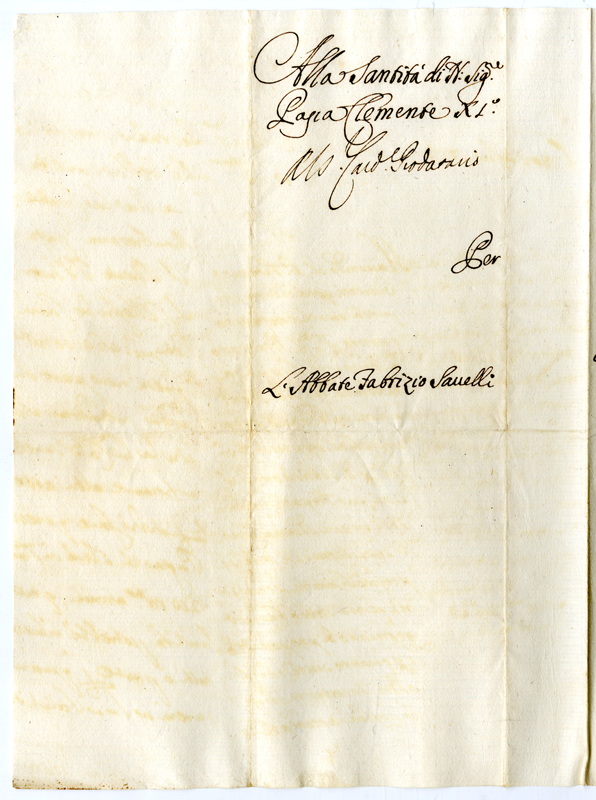 Alla Santità di N: Sig.re
Papa Clemente XI.o
Als. Card. Prodatario
Per
L. Abbate Fabrizio Sauelli